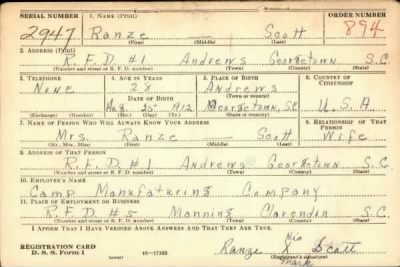 SERIAL NUMBER 1. NAME (Print) ORDER NUMBER
2947 Ranze Scott 894
(First) (Middle) (Last)
2. ADDRESS (Print)
R.F.D #1 Andrews Georgetown S.C
(Number and street or R. F. D. number) (Town) (County) (State)
3. TELEPHONE 4. AGE IN YEARS 5. PLACE OF BIRTH 6. COUNTRY OF CITIZENSHIP
None 28 Andrews
(Town or county)
DATE OF BIRTH
Aug 25 1912 Georgetown, S.C U.S.A
(Exchange) (Number) (Mo.) (Day) (Yr.) (State or country)
7. NAME OF PERSON WHO WILL ALWAYS KNOW YOUR ADDRESS 8. RELATIONSHIP OF THAT PERSON
Mrs. Ranze Scott Wife
(Mr., Mrs., Miss) (First) (Middle) (Last)
9. ADDRESS OF THAT PERSON
R.F.D #1 Andrews Georgetown S.C
(Number and street or R. F. D. number) (Town) (County) (State)
10. EMPLOYER'S NAME
Camp Manufaturing Company
11. PLACE OF EMPLOYMENT OR BUSINESS
R.F.D. #5 Manning Clarendon S.C
(Number and street or R. F. D. number) (Town) (County) (State)
I AFFIRM THAT I HAVE VERIFIED ABOVE ANSWERS AND THAT THEY ARE TRUE.
REGISTRATION CARD
D. S. S. Form 1 (over) 16—17105
his
Ranze X Scott
(Registrant's signature)
mark